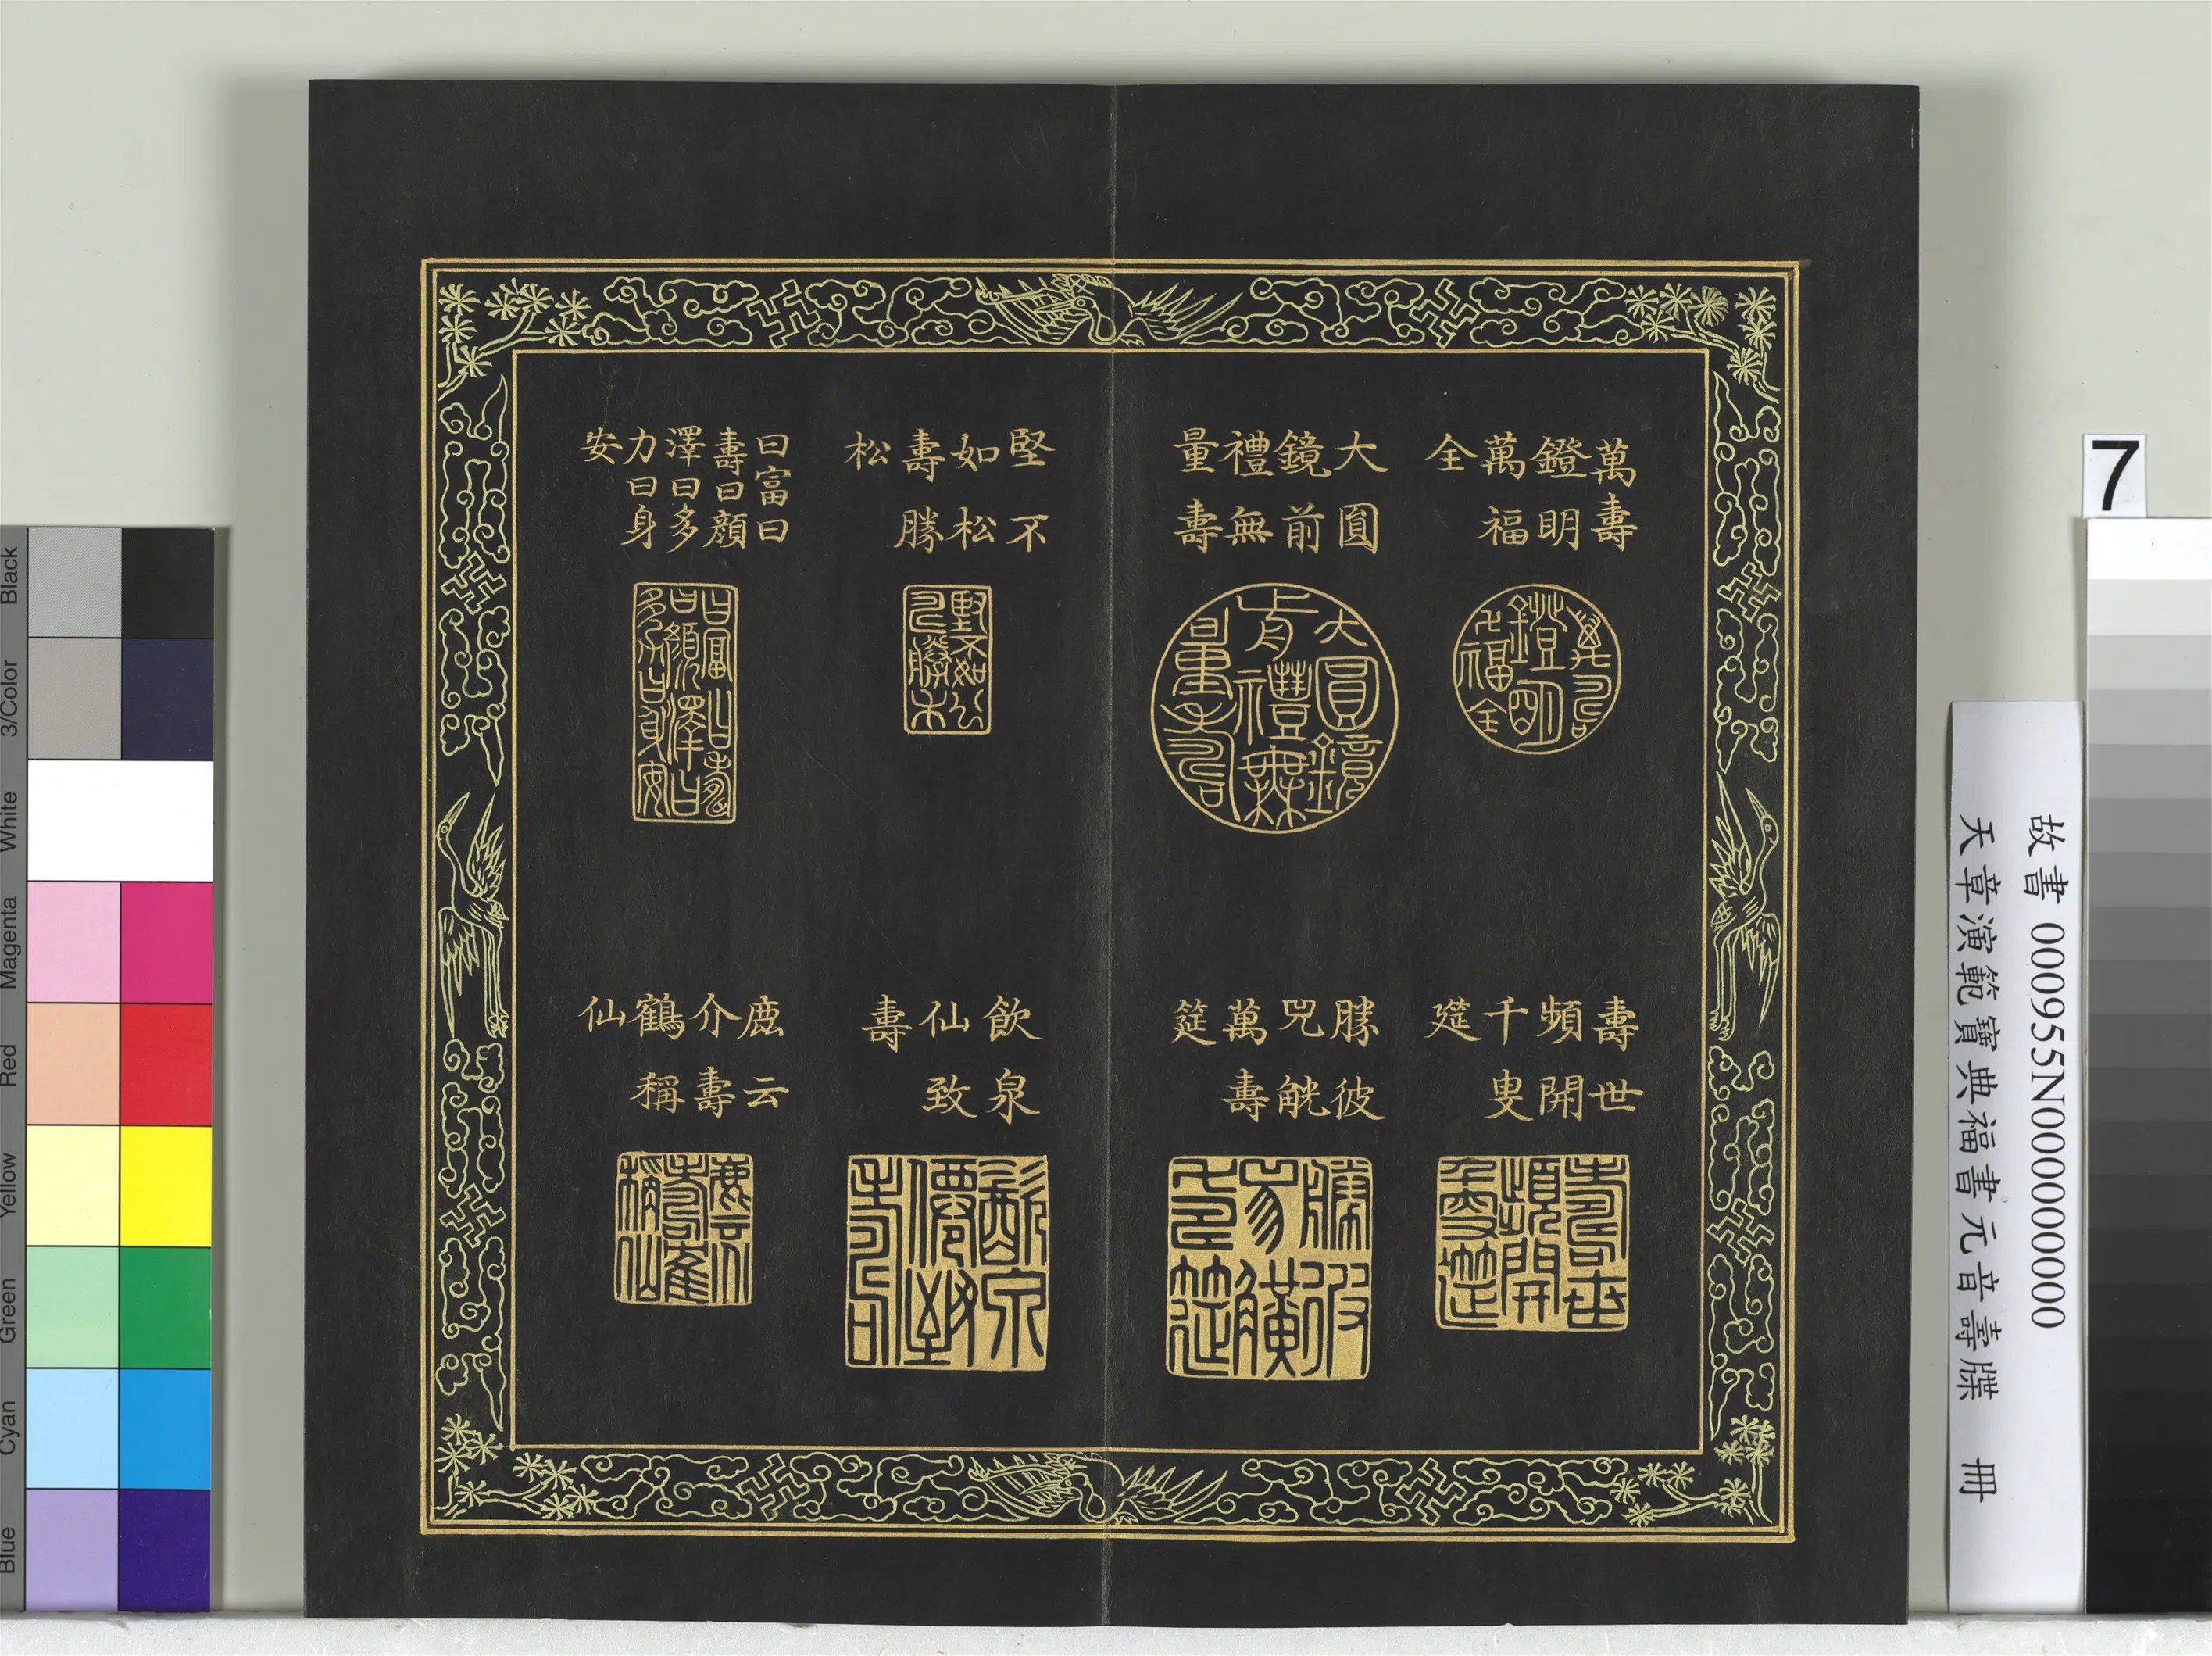 萬壽
鐙明
萬福
全
大圓
鏡前
禮無
量壽
壽世
頻開
千叟
筵
勝彼
兕觥
萬壽
筵
堅不
如松
壽勝
松
曰富曰
壽曰顏
澤曰多
力曰身
安
飲泉
仙致
壽
鹿云
介壽
鶴稱
仙
7
故書 000955N000000000
天章演範寶典福書元音壽牒 冊
Black
3/Color
White
Magenta
Red
Yellow
Green
Cyan
Blue